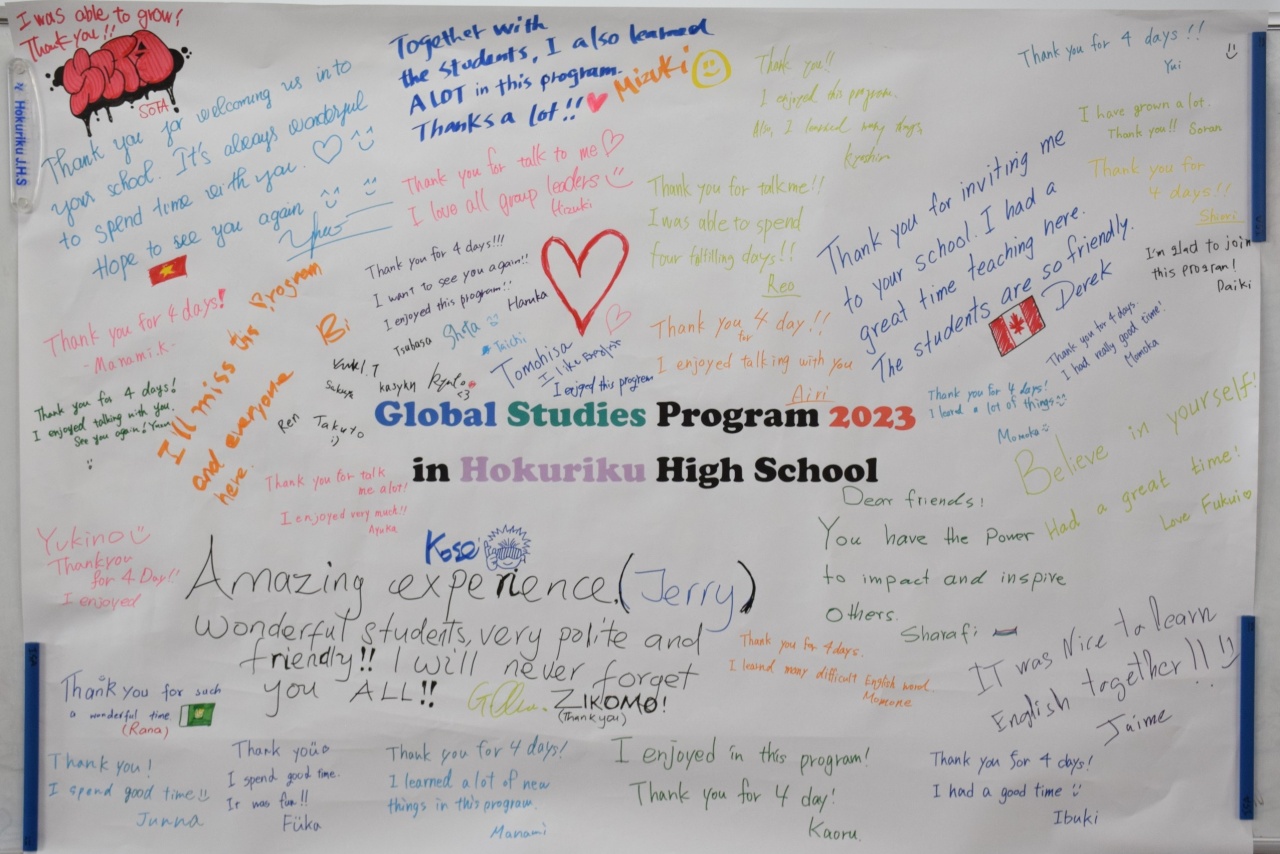 I was able to grow!
Thank you!!
SOTA
SOTA
Hokuriku J.H.S
Thank you for welcoming us into
your school. It's always wonderful
to spend time with you.
Hope to see you again
Together with
the students, I also learned
A LOT in this program.
Thanks a lot!!
Mizuki
Thank you!!
I enjoyed this program.
Also, I learned many things,
Thank you for 4 days!!
Yui
I have grown a lot.
Thank you!! Soran
Thank you for
4 days!!
Thank you for talk to me
I love all group leaders
Hizuki
Thank you for talk me!!
I was able to spend
four fulfilling days!!
Reo
Thank you for inviting me
to your school. I had a
great time teaching here.
The students are so friendly.
Derek
I'm glad to join
this program!
Daiki
Thank you for 4 days!!!
I want to see you again!!
I enjoyed this program!!
Tsubasa
Haruka
Shota
Taichi
Thank you for 4 days!
- Manami.K -
I'll miss this Program
and everyone
here.
Bi
Yuuki.T
kasykn
Ren
Takuto
:)
<3
Tomohisa
I like English
I enjoyed this program
Thank you for 4 day!!
I enjoyed talking with you
Airi
Thank you for 4 days.
I had really good time!
Momoka
Thank you for 4 days!
I enjoyed talking with you.
See you again!
Thank you for 4 days!
I learnd a lot of things
Momoka
Global Studies Program 2023
in Hokuriku High School
Believe in yourself!
Had a great time!
Love Fukui
Thank you for talk
me alot!
I enjoyed very much!!
Ayuka
Dear friends!
You have the Power
to impact and inspire
Others.
Sharafi
Yukino
Thankyou
for 4 Day!!
I enjoyed
Kosei
Amazing experience. (Jerry)
Wonderful students, very polite and
friendly!! I will never forget
you ALL!!
ZIKOMO!
(Thank you)
Thank you for 4 days.
I learned many difficult English word.
Momone
IT was Nice to learn
English together!!
Jaime
Thank you for such
a wonderful time
(Rana)
Thank you!
I spend good time!!
Junna
Thank you
I spend good time.
It was fun!!
Füka
Thank you for 4 days!
I learned a lot of new
things in this program.
Manami
I enjoyed in this program!
Thank you for 4 day!
Kaoru.
Thank you for 4 days!
I had a good time
Ibuki